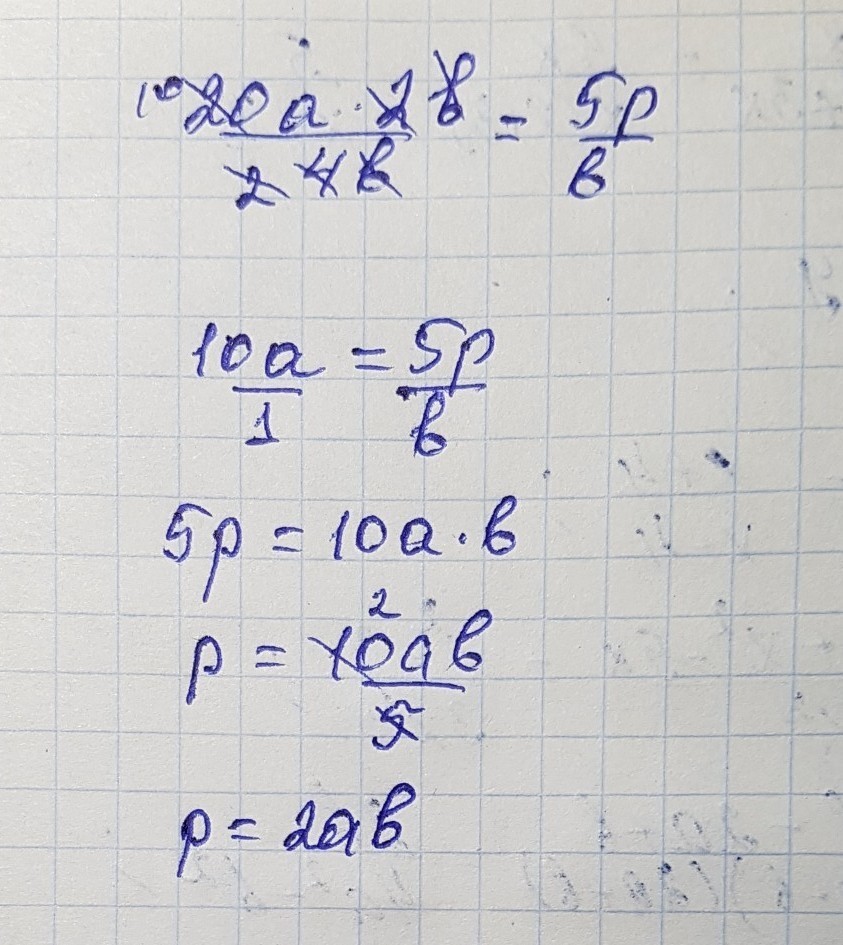 10 20a · 2b / 2 4b = 5p / b
10a / 1 = 5p / b
5p = 10a · b
p = 2 10ab / 5
p = 2ab